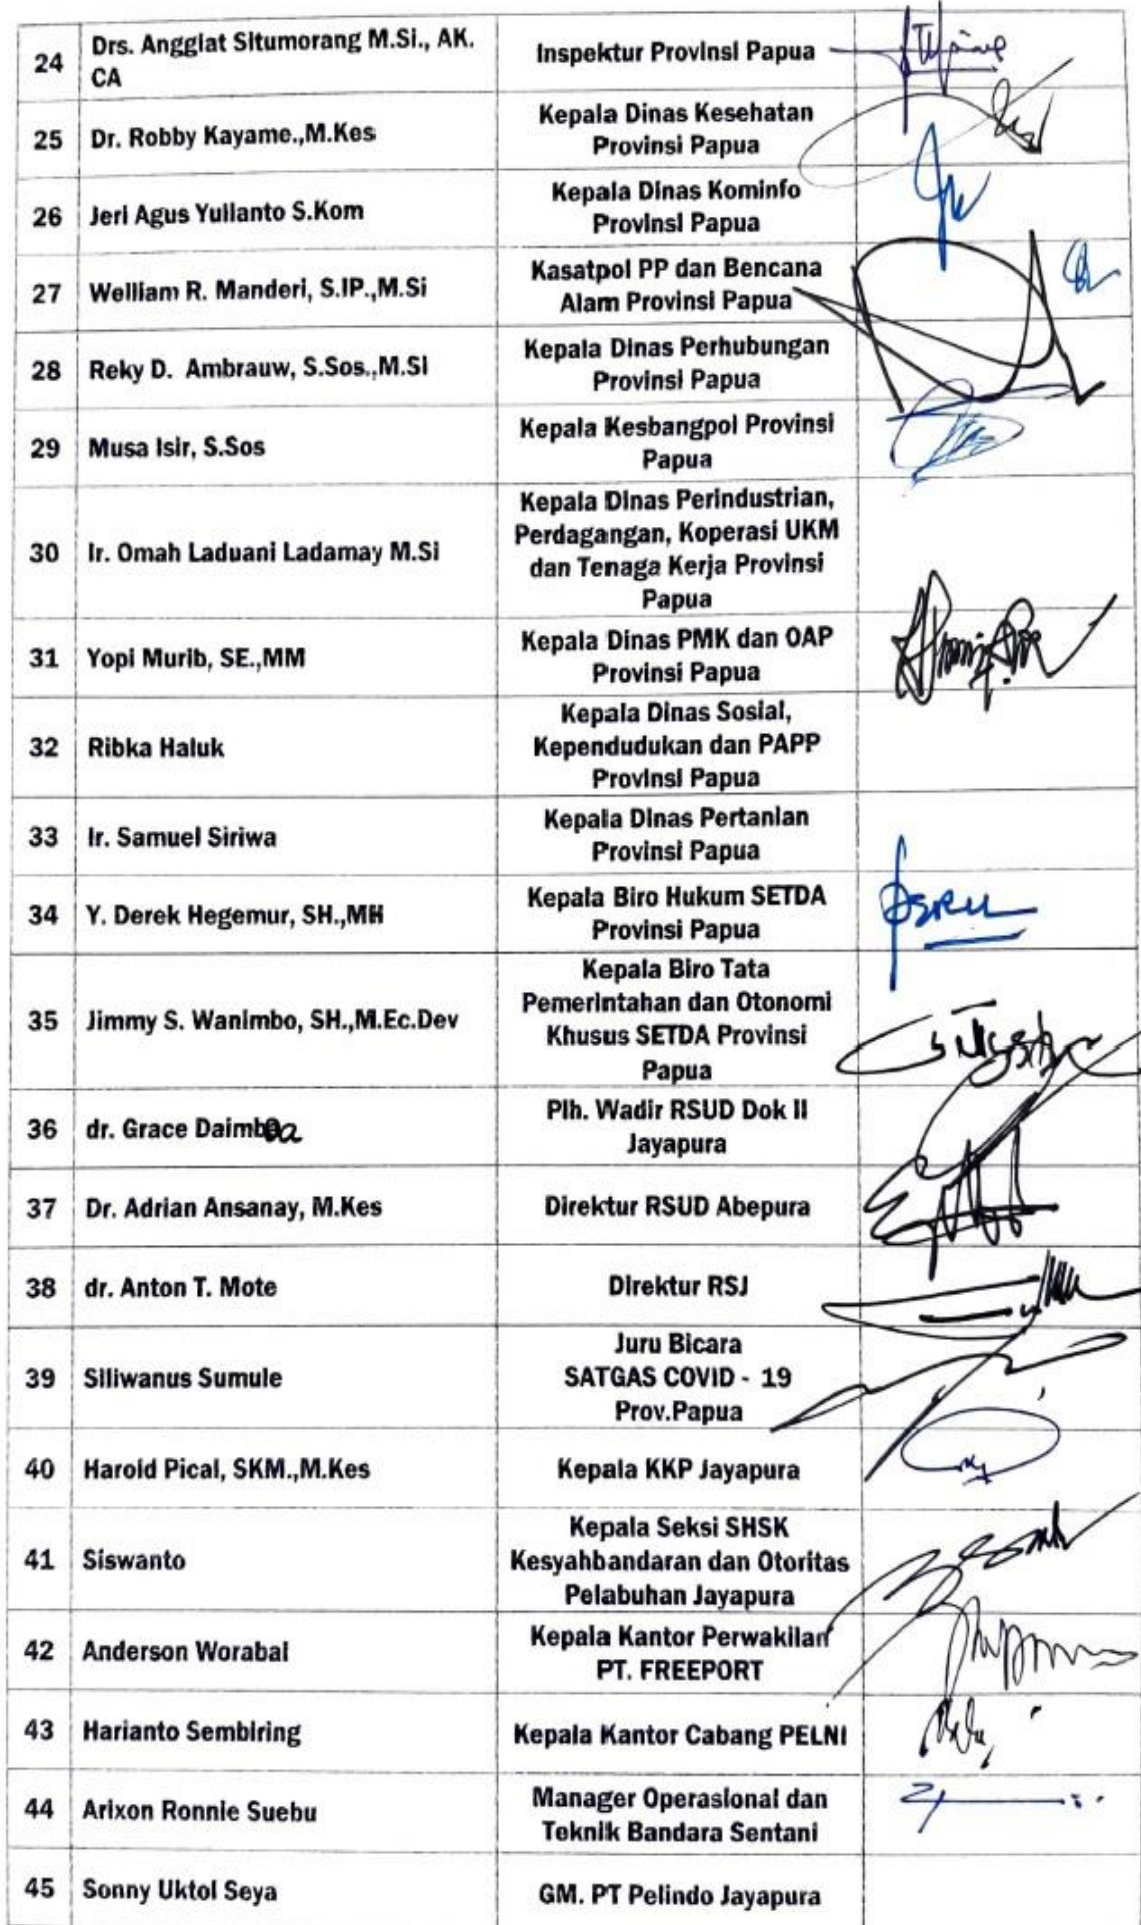 24
Drs. Anggiat Situmorang M.Si., AK.
CA
Inspektur Provinsi Papua
25
Dr. Robby Kayame.,M.Kes
Kepala Dinas Kesehatan
Provinsi Papua
26
Jeri Agus Yulianto S.Kom
Kepala Dinas Kominfo
Provinsi Papua
27
Welliam R. Manderi, S.IP.,M.Si
Kasatpol PP dan Bencana
Alam Provinsi Papua
28
Reky D. Ambrauw, S.Sos.,M.Si
Kepala Dinas Perhubungan
Provinsi Papua
29
Musa Isir, S.Sos
Kepala Kesbangpol Provinsi
Papua
30
Ir. Omah Laduani Ladamay M.Si
Kepala Dinas Perindustrian,
Perdagangan, Koperasi UKM
dan Tenaga Kerja Provinsi
Papua
31
Yopi Murib, SE.,MM
Kepala Dinas PMK dan OAP
Provinsi Papua
32
Ribka Haluk
Kepala Dinas Sosial,
Kependudukan dan PAPP
Provinsi Papua
33
Ir. Samuel Siriwa
Kepala Dinas Pertanian
Provinsi Papua
34
Y. Derek Hegemur, SH.,MH
Kepala Biro Hukum SETDA
Provinsi Papua
35
Jimmy S. Wanimbo, SH.,M.Ec.Dev
Kepala Biro Tata
Pemerintahan dan Otonomi
Khusus SETDA Provinsi
Papua
36
dr. Grace Daimboa
Plh. Wadir RSUD Dok II
Jayapura
37
Dr. Adrian Ansanay, M.Kes
Direktur RSUD Abepura
38
dr. Anton T. Mote
Direktur RSJ
39
Siliwanus Sumule
Juru Bicara
SATGAS COVID - 19
Prov.Papua
40
Harold Pical, SKM.,M.Kes
Kepala KKP Jayapura
41
Siswanto
Kepala Seksi SHSK
Kesyahbandaran dan Otoritas
Pelabuhan Jayapura
42
Anderson Worabai
Kepala Kantor Perwakilan
PT. FREEPORT
43
Harianto Sembiring
Kepala Kantor Cabang PELNI
44
Arixon Ronnie Suebu
Manager Operasional dan
Teknik Bandara Sentani
45
Sonny Uktol Seya
GM. PT Pelindo Jayapura